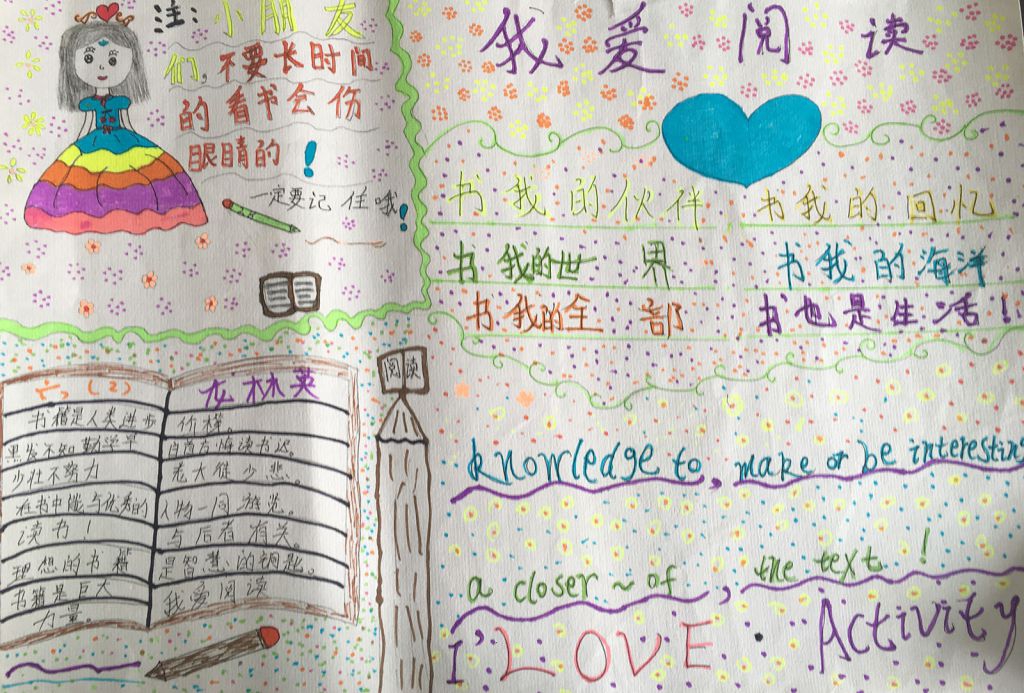 注: 小朋友
们, 不要长时间
的看书会伤
眼睛的!
一定要记住哦!
我爱阅读
书我的伙伴 书我的回忆
书我的世界 书我的海洋
书我的全部 书也是生活!
阅读
六(2) 龙林英
书籍是人类进步 价梯。
黑发不知勤学早 白首方悔读书迟。
少壮不努力 老大徒少悲。
在书中能与优秀的 人物一同游览。
读书! 与后者有关。
理想的书籍 是智慧的钥匙。
书籍是巨大 我爱阅读
力量。
knowledge to, make or be interesting
a closer ~ of, the text!
I' LOVE Activity